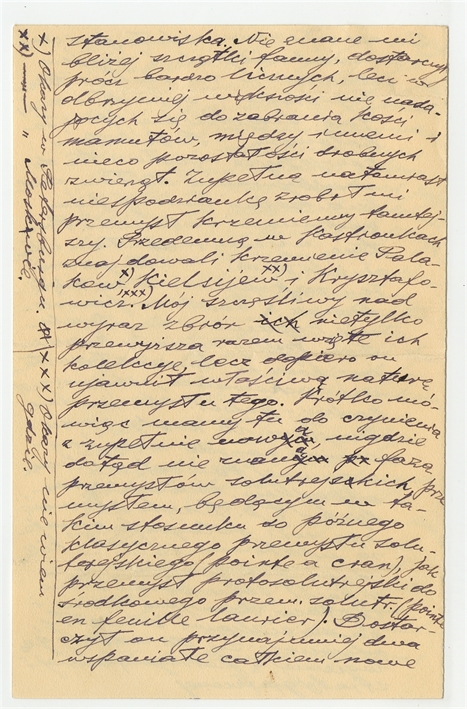 stanowiska. Nie znane mi
bliżej szczątki fauny, dostarczyły
prócz bardzo licznych, lecz w
olbrzymiej większości nie nada-
jących się do zabrania kości
mamutów, między innemi i
nieco pozostałości drobnych
zwierząt. Zupełną natomiast
niespodziankę zrobił mi
przemysł krzemienny tamtej-
szy. Przedemną w Kostionkach
znajdowali krzemienie Pola-
kow x) Kielsijew xx) i Krysztafo-
wicz. xxx) Mój szczęśliwy nad
wyraz zbiór ich nietylko
przewyższa razem wzięte ich
kolekcye, lecz dopiero on
ujawnił właściwą naturę
przemysłu tego. Krótko mó-
wiąc mamy tu do czynienia
z zupełnie nową, nigdzie
dotąd nie znaną fazą
przemysłów solutrejskich, prze-
mysłem, będącym w ta-
kim stosunku do późnego
klasycznego przemysłu solu-
trejskiego (pointe à cran), jak
przemysł protosolutrejski do
środkowego przem. solutr. (pointe
en feuille laurier). Dostar-
czył on przynajmniej dwa
wspaniałe całkiem nowe
x) Okazy w Petersburgu. xxx) Okazy nie wiem
gdzie.
xx) —„— " Moskwie.